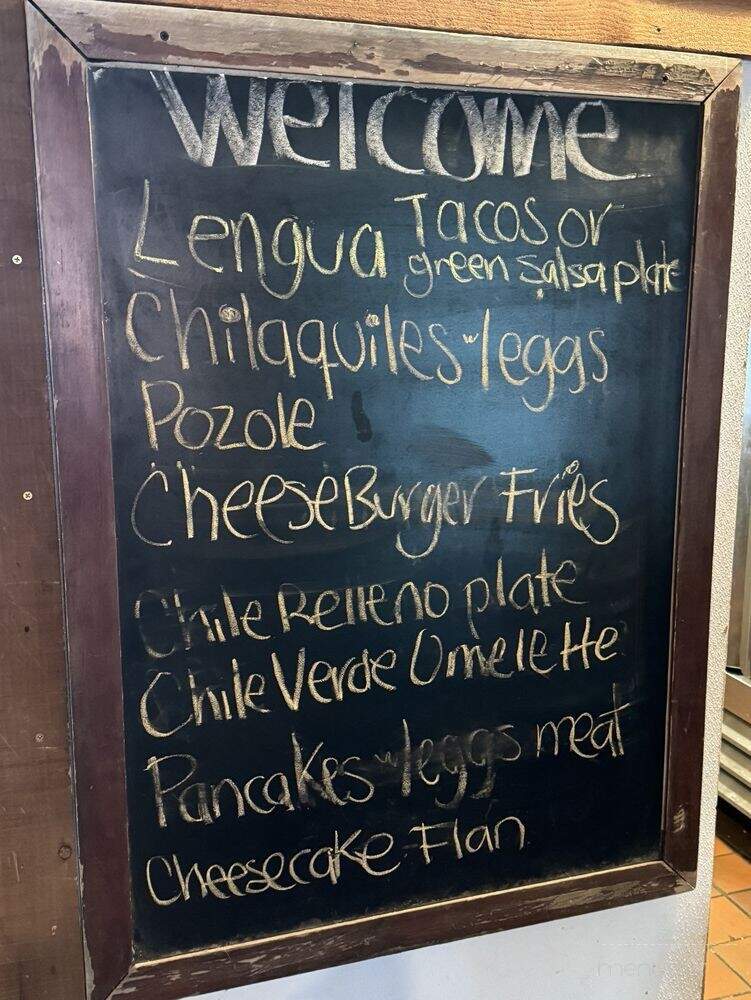 Welcome
Lengua Tacos or
green salsa plate
Chilaquiles w/eggs
Pozole
CheeseBurger Fries
Chile Relleno plate
Chile Verde Omelette
Pancakes w/eggs meat
Cheesecake-Flan